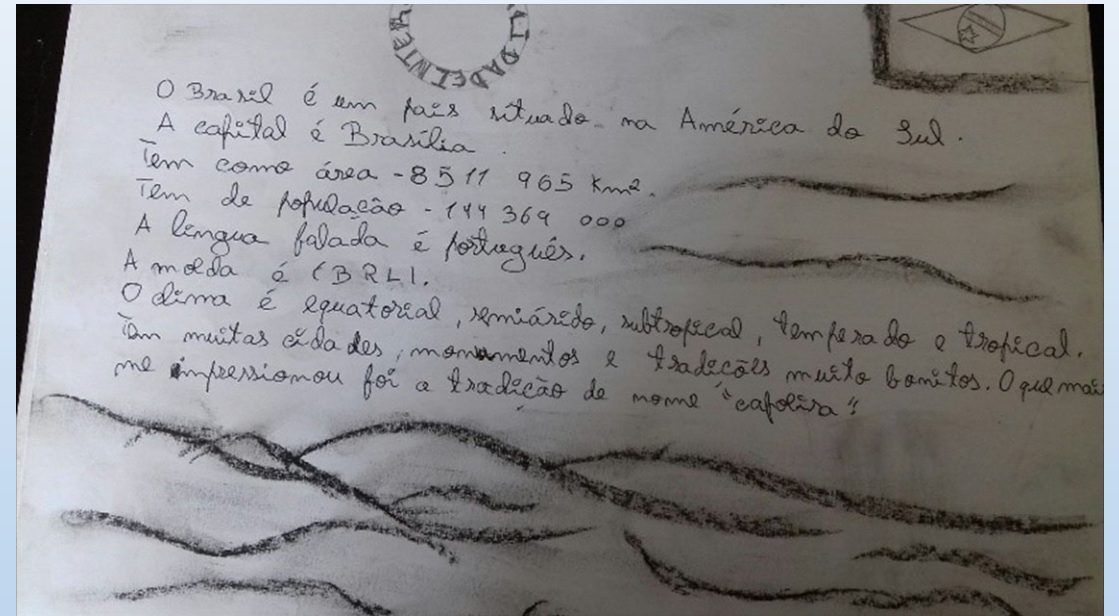 LIDADEINTER
O Brasil é um país situado na América do Sul.
A capital é Brasília.
Tem como área - 8511 965 Km².
Tem de população - 144 369 000
A língua falada é português.
A molda é (BRL).
O clima é equatorial, semiárido, subtropical, temperado e tropical.
Tem muitas cidades, monumentos e tradições muito bonitos. O que mais
me impressionou foi a tradição de nome "capolira".